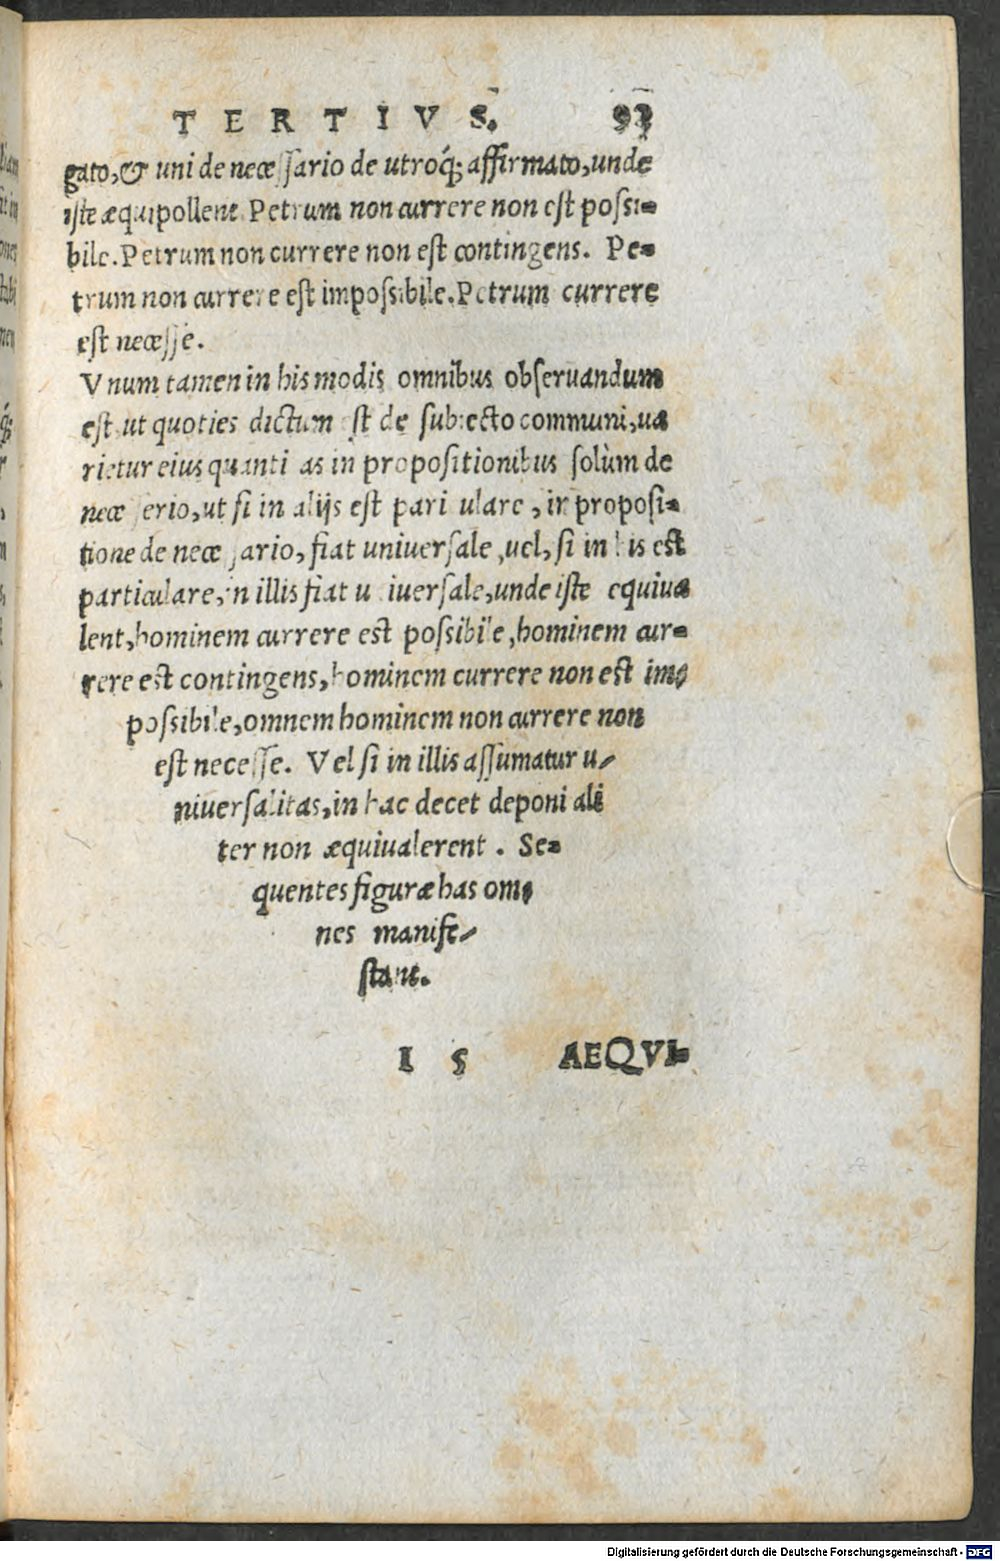 TERTIVS. 93
gato,& uni de necessario de utroq́; affirmato,unde
iste æquipollent Petrum non currere non est possi=
bile. Petrum non currere non est contingens. Pe=
trum non currere est impossibile. Petrum currere
est necesse.
Vnum tamen in his modis omnibus obseruandum
est ut quoties dictum est de subiecto communi,ua
rietur eius quantitas in propositionibus solùm de
necessario,ut si in alijs est particulare, in proposi=
tione de necessario, fiat uniuersale, uel, si in his est
particulare,in illis fiat uniuersale,unde iste equiua
lent,hominem currere est possibile,hominem cur=
rere est contingens,hominem currere non est im=
possibile,omnem hominem non currere non
est necesse. Vel si in illis assumatur u=
niuersalitas,in hac decet deponi ali
ter non æquiualerent. Se=
quentes figuræ has om=
nes manife=
stant.
I 5 AEQVI=
Digitalisierung gefördert durch die Deutsche Forschungsgemeinschaft - DFG